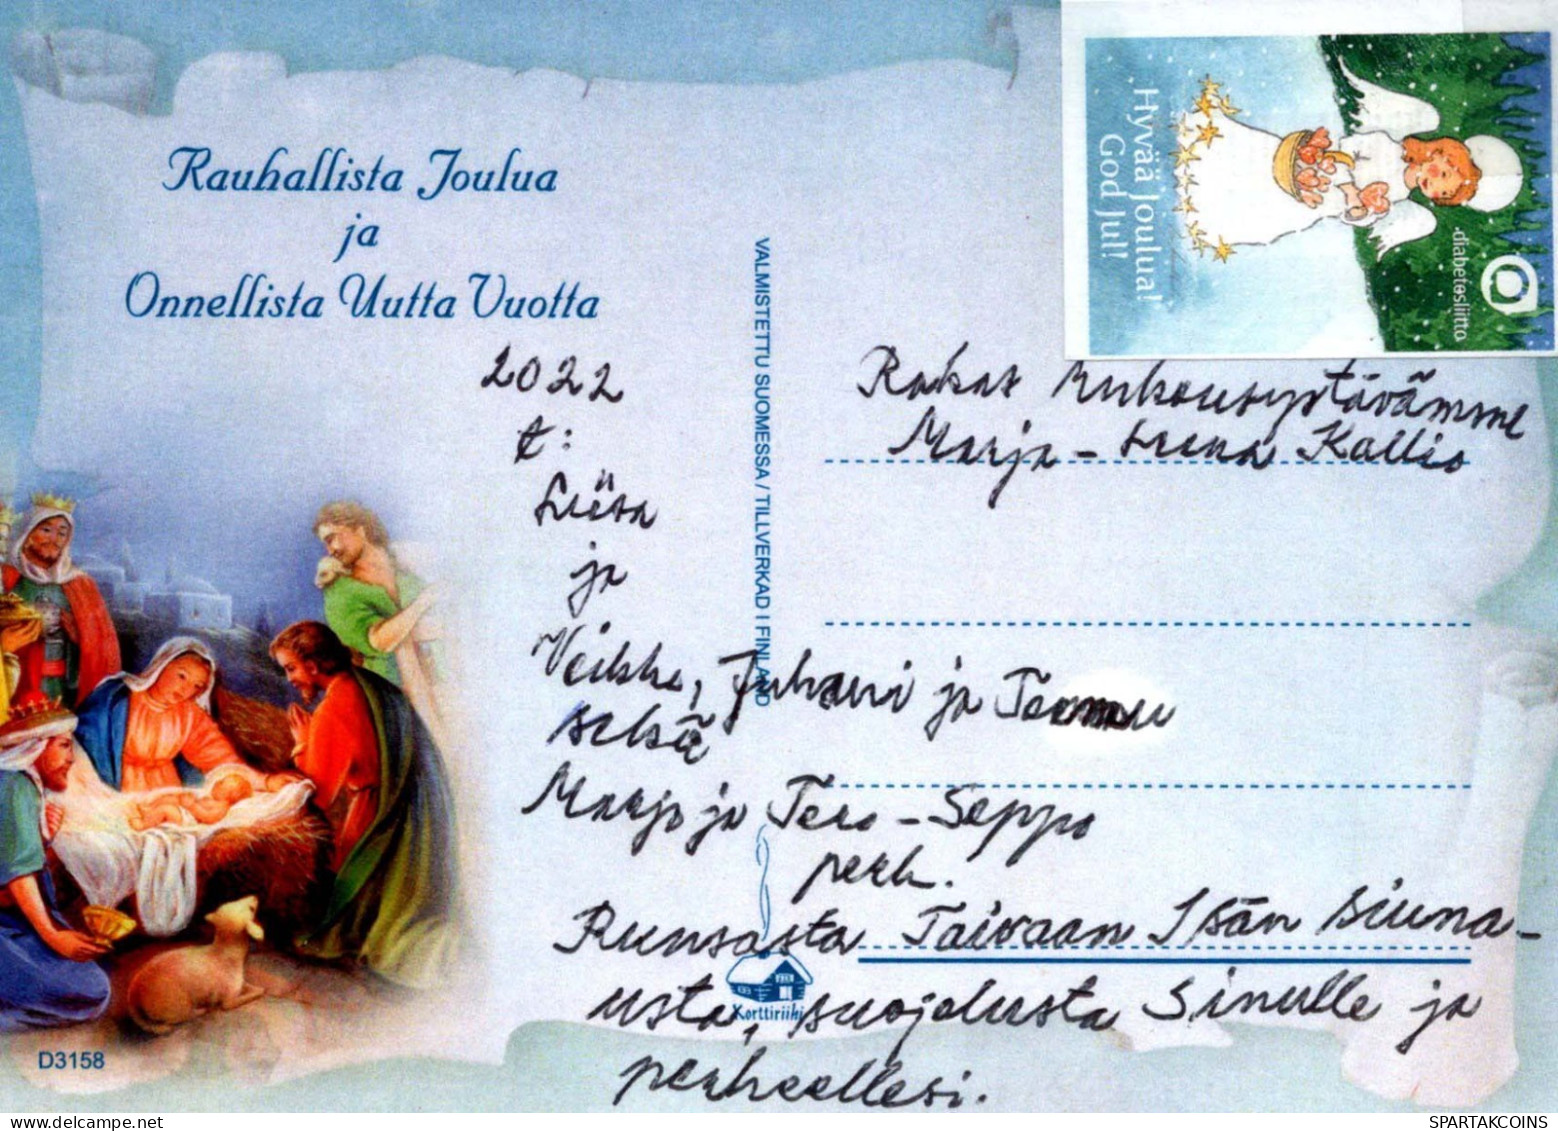 Rauhallista Joulua
ja
Onnellista Uutta Vuotta
2022
t:
Liisa
ja
Veikko, Juhani ja Teemu
sekä
Marjo ja Tero-Seppo
perh.
Runsasta Taivaan Isän siuna-
usta, suojelusta Sinulle ja
perheellesi.
Rakas rukousystävämme
Marja-Leena Kallio
VALMISTETTU SUOMESSA / TILLVERKAD I FINLAND
Hyvää Joulua!
God Jul!
diabetesliitto
Korttiriihi
D3158
SPARTAKCOINS
https://www.delcampe.net
SPARTAKCOINS.COM